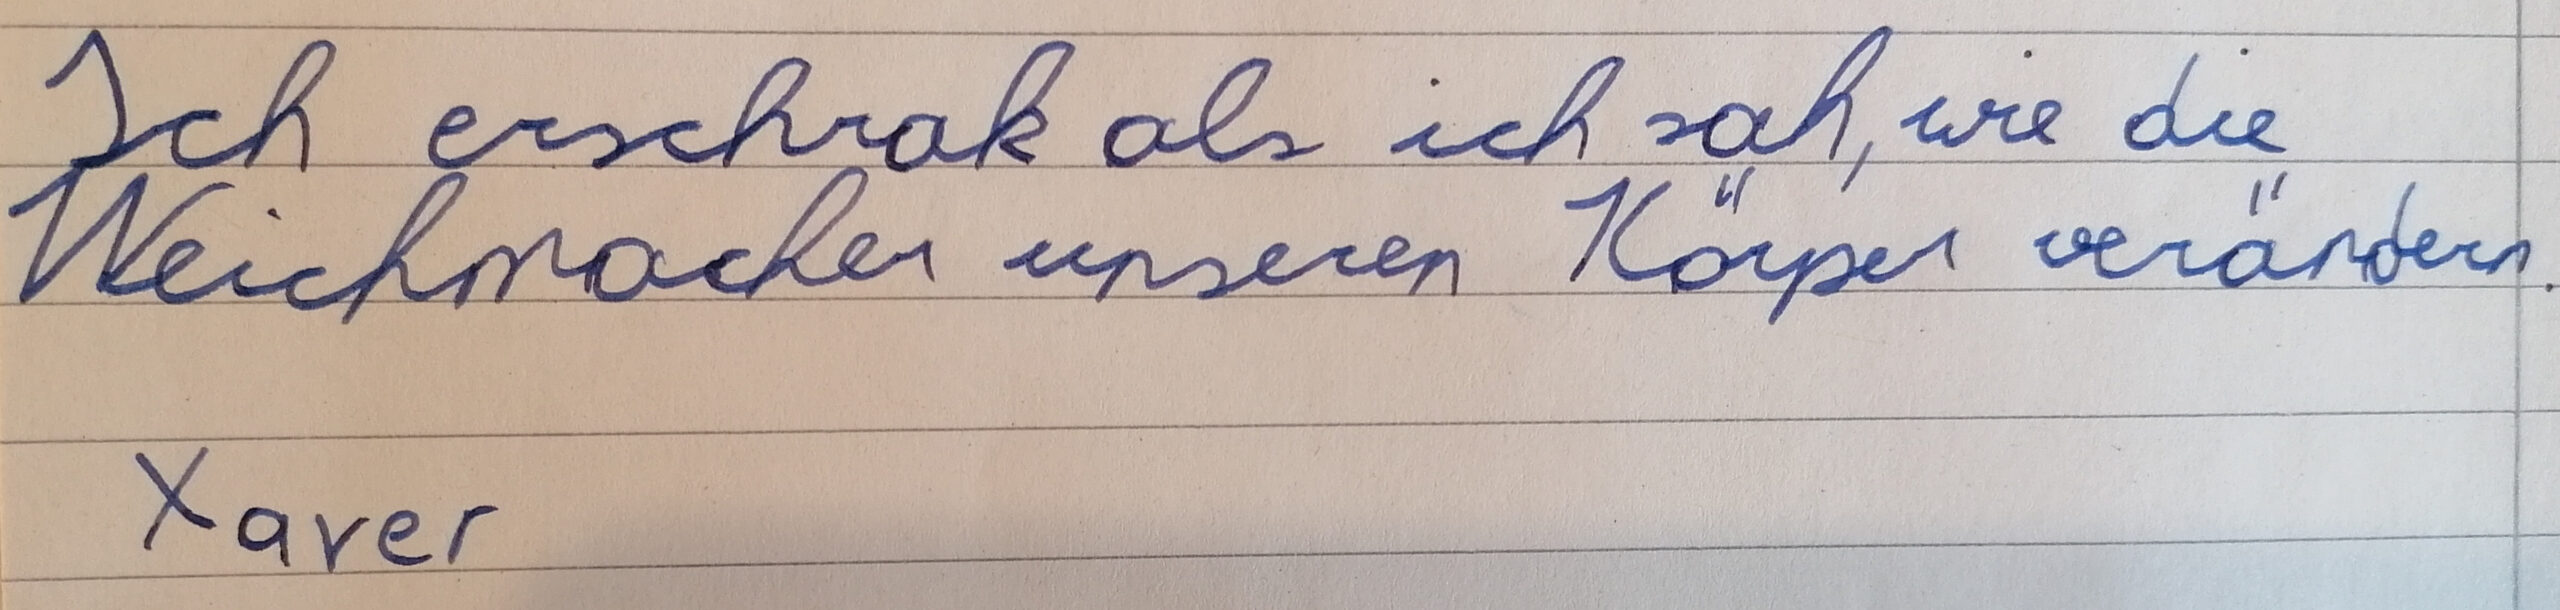 Ich erschrak als ich sah, wie die
Weichmacher unseren Körper verändern.
Xaver